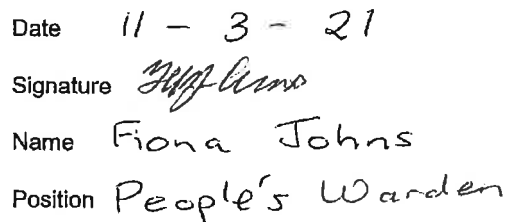 Date 11 - 3 - 21
Signature
Name Fiona Johns
Position People's Warden